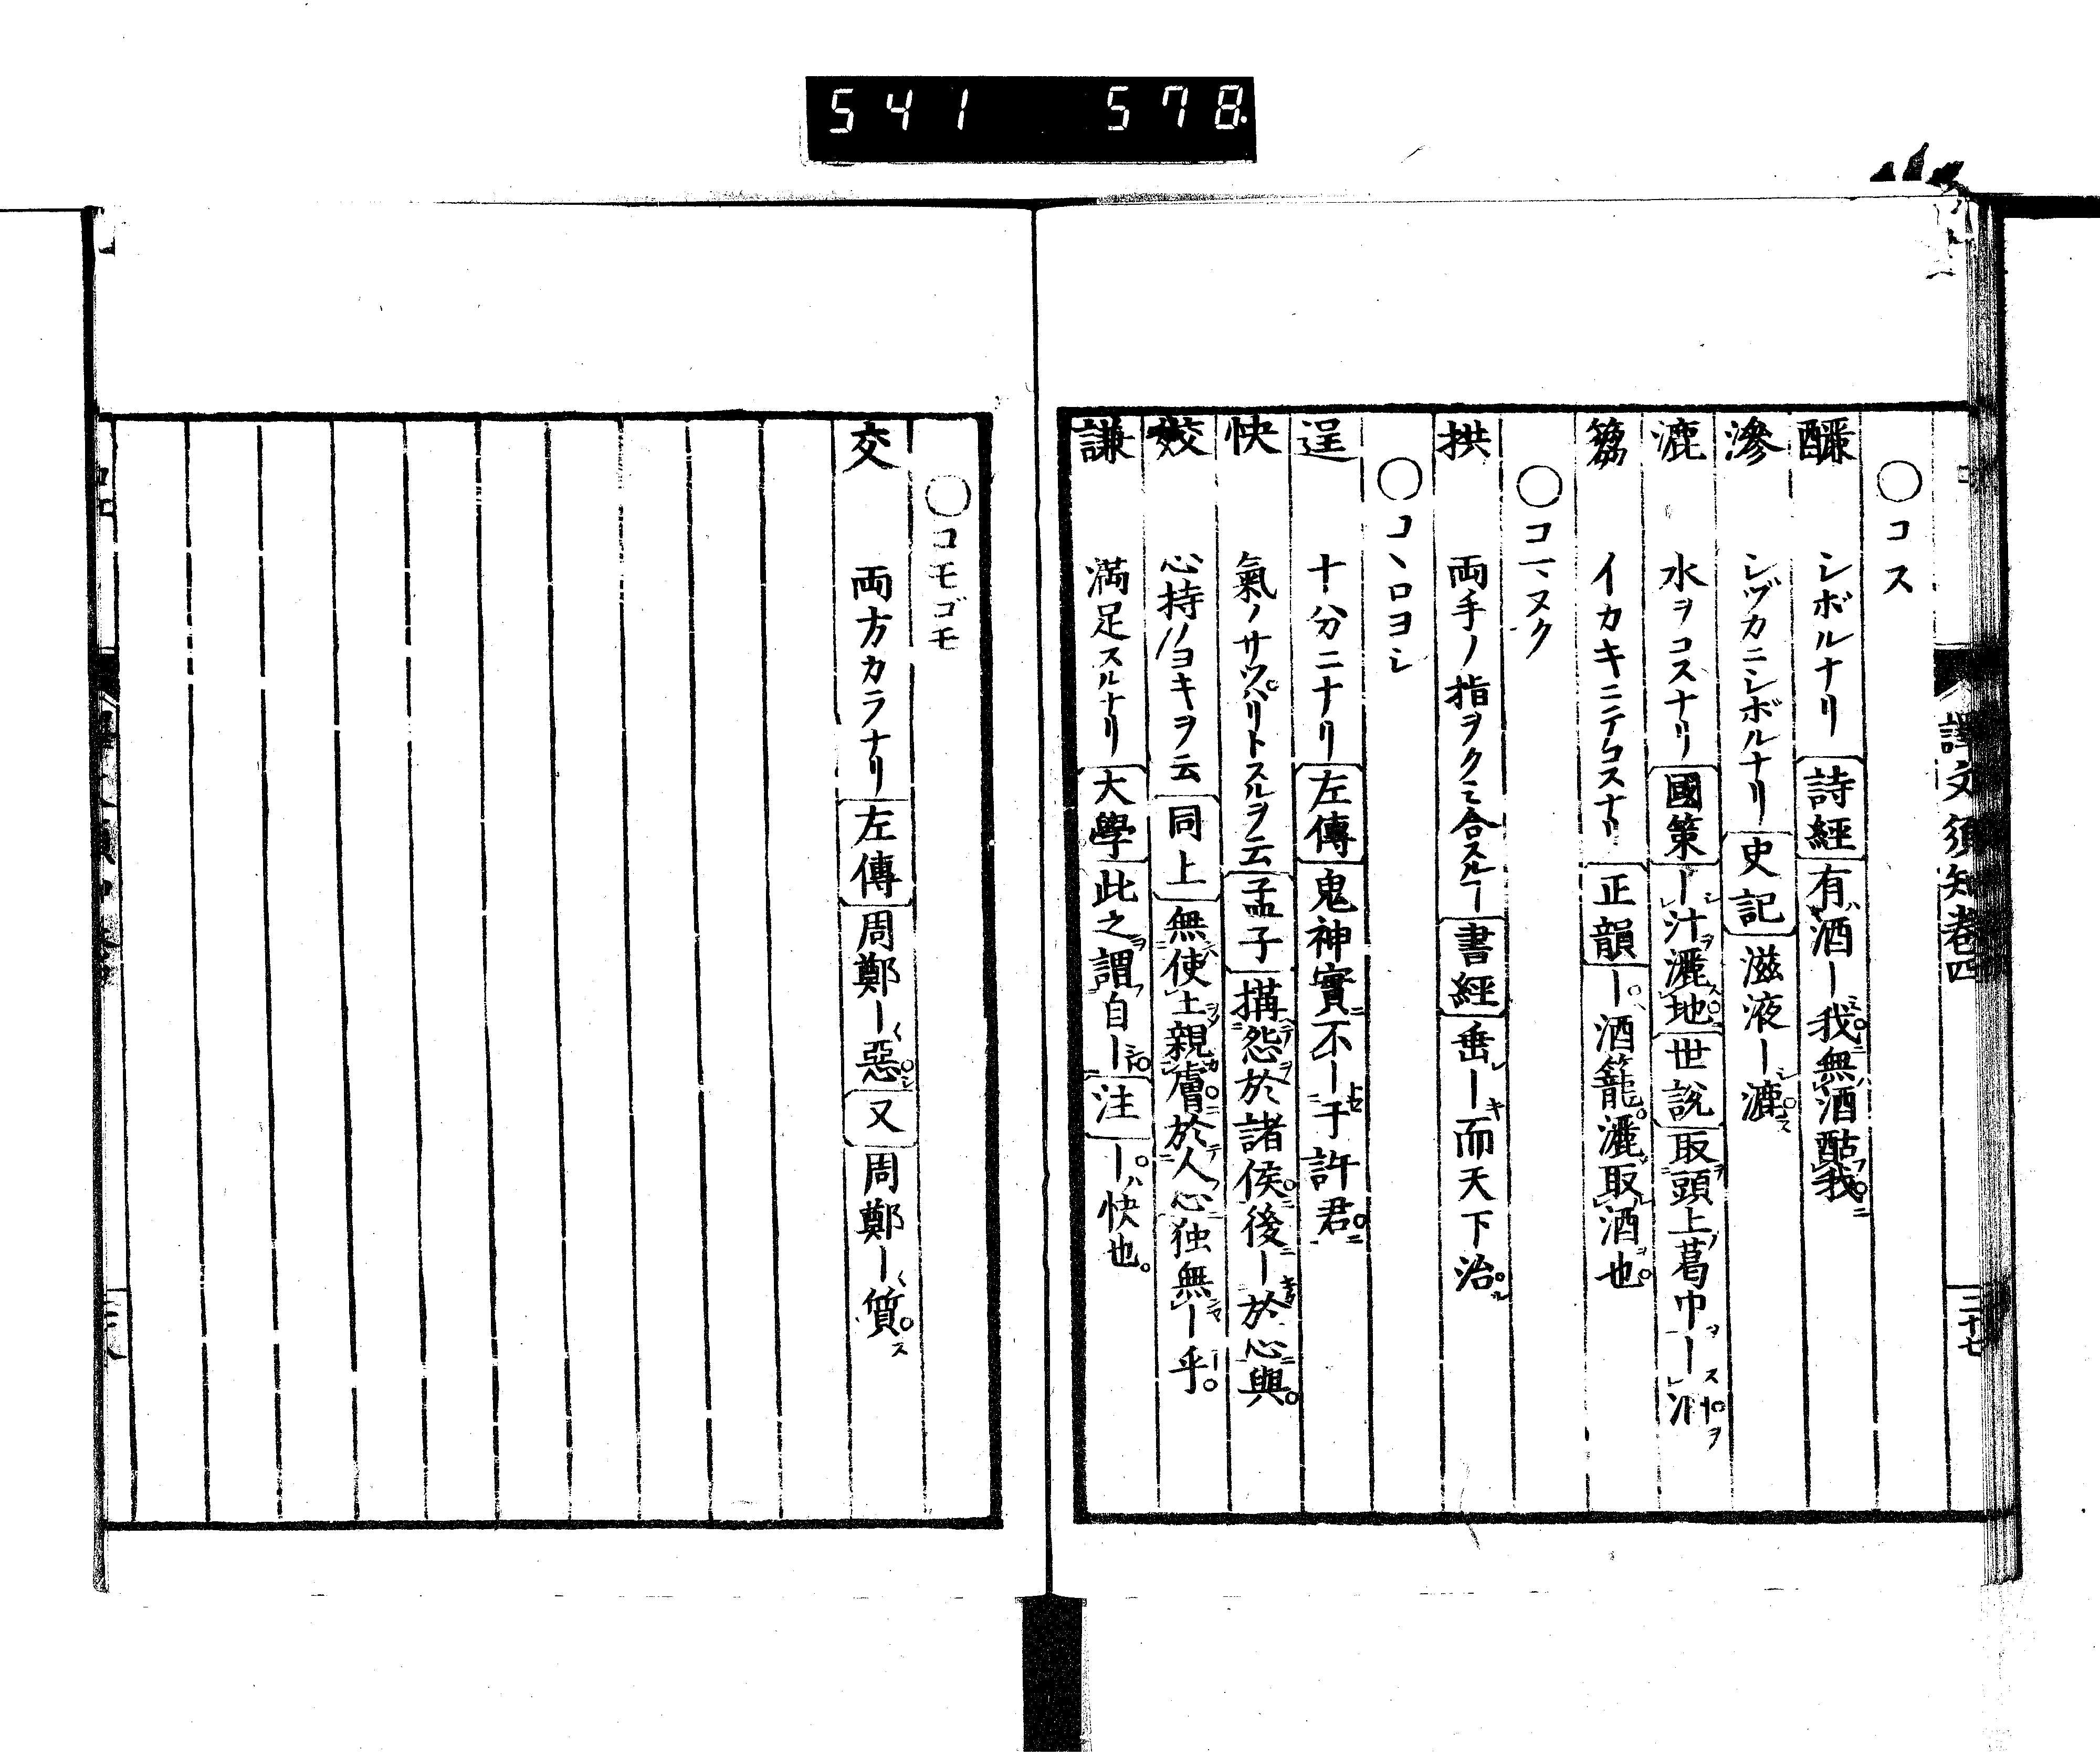 541 578
譯文須知卷四
三十七
○コス
釃 シボルナリ 詩經 有酒ー我無酒酤我
滲 シヅカニシボルナリ 史記 滋液ー漉
漉 水ヲコスナリ 國策 ー汁灑地 世説 取頭上葛巾ー酒
篘 イカキニテコスナリ 正韻 ー酒籠漉取酒也
○コマヌク
拱 両手ノ指ヲクミ合スルー 書經 垂ー而天下治
○コヽロヨシ
逞 十分ニナリ 左傳 鬼神實不ー于許君
快 氣ノサツパリトスルヲ云 孟子 搆怨於諸侯後ー於心與
恔 心持ノヨキヲ云 同上 無使土親膚於人心独無ー乎
謙 満足スルナリ 大學 此之謂自ー 注 ーハ快也
○コモゴモ
交 両方カラナリ 左傳 周鄭ー惡 又 周鄭ー質